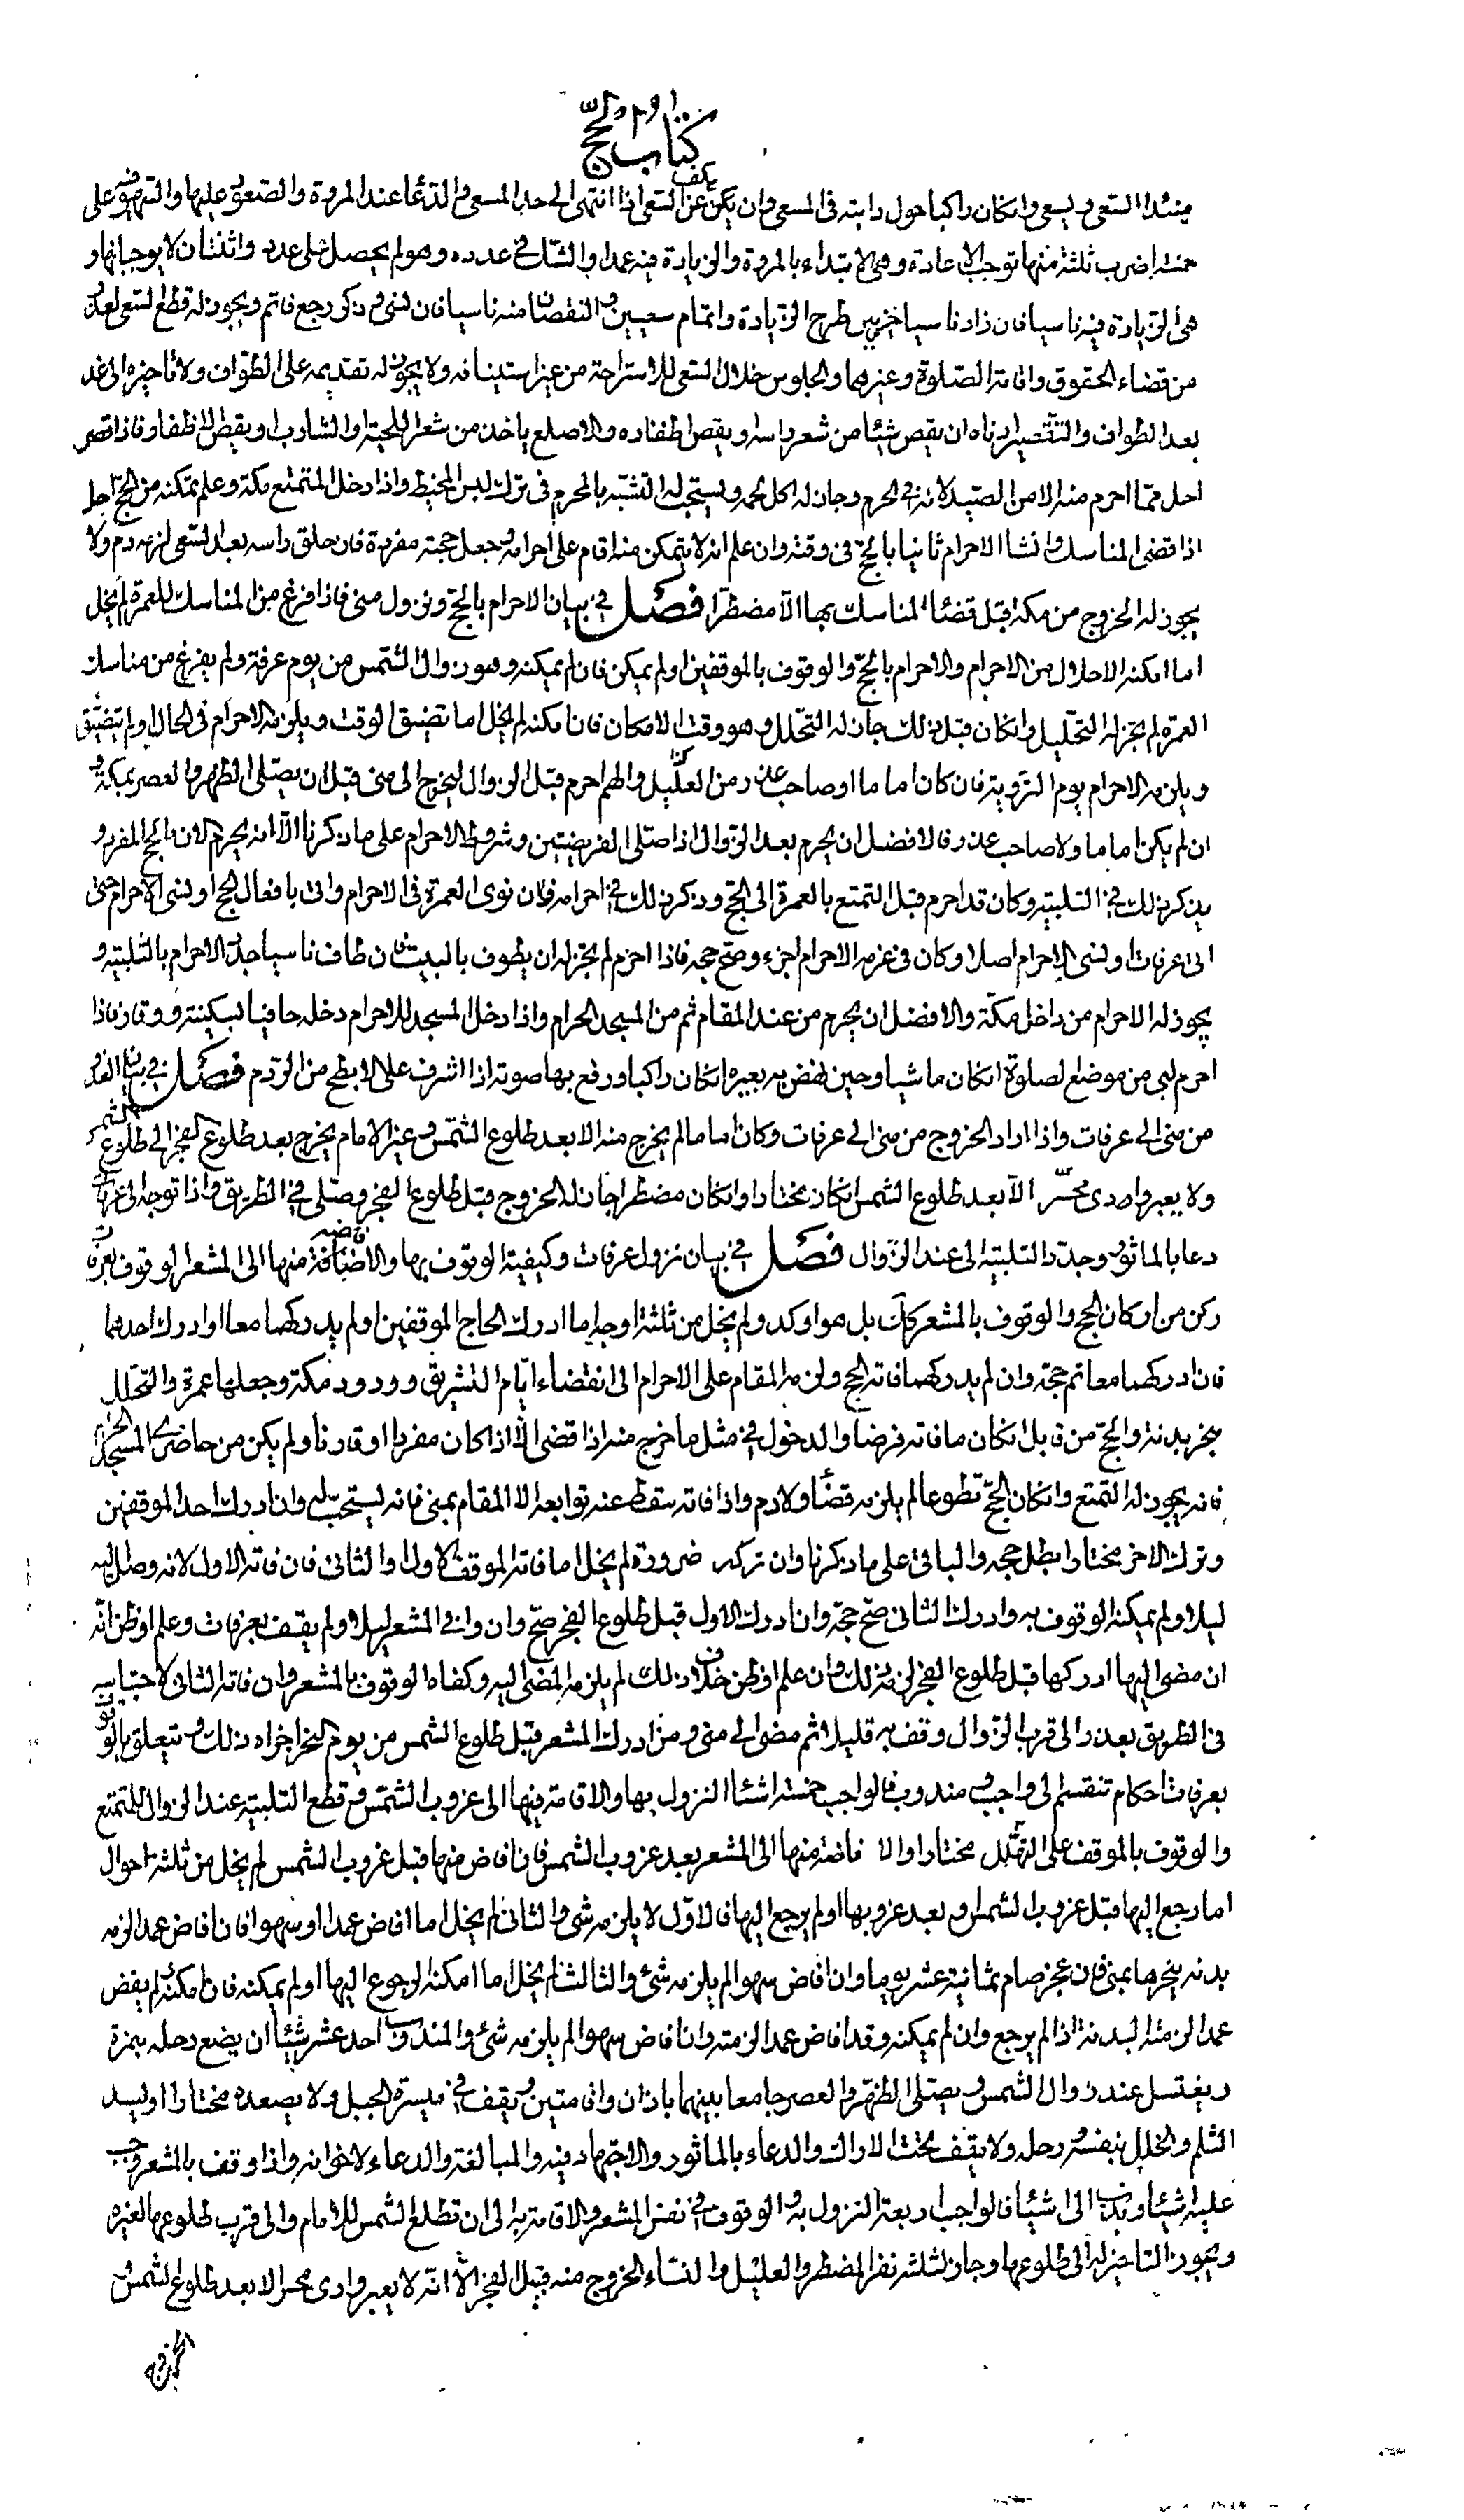 كتاب الحج
منه السعى ويسعى وان كان راكبا حول دابته فى المسعى وان يكف عن السعى اذا انتهى الى حد المسعى والدعاء عند المروة والصعود عليها والسهو فيه على
خمسة اضرب ثلثة منها توجب الاعادة وهى الابتداء بالمروة والزيادة فيه عمدا والشك فى عدده وهو لم يحصل على عدد واثنتان لا يوجبانها و
هى الزيادة فيه ناسيا فان زاد ناسيا طرح الزيادة واتمام سعيين والنقصان منه ناسيا فان نسى وذكر رجع فاتم ويجوز له قطع السعى لعذر
من قضاء الحقوق واقامة الصلوة وغيرهما والجلوس خلال السعى للاستراحة من غير استيناف ولا يجوز له تقديمه على الطواف ولا تاخيره الى غد
بعد الطواف والتقصير ادناه ان يقص شيئا من شعر راسه ويقص اظفاره والاصلع ياخذ من شعر اللحية او الشارب او يقص الاظفار فاذا قصر
احل مما احرم منه الا من الصيد لانه فى الحرم وجاز له اكل لحمه ويستحب له التشبه بالمحرم فى ترك لبس المخيط واذا دخل المتمتع مكة وعلم تمكنه من الحج احل
اذا قضى المناسك وانشا الاحرام ثانيا بالحج فى وقته وان علم انه لا يتمكن منه اقام على احرامه وجعل حجته مفردة فان حلق راسه بعد السعى لزمه دم ولا
يجوز له الخروج من مكة قبل قضاء المناسك بها الا مضطرا فصل فى بيان الاحرام بالحج ونزول منى فاذا فرغ من المناسك للعمرة لم يخل
اما امكنه الاحلال من الاحرام والاحرام بالحج والوقوف بالموقفين او لم يمكن فان لم يمكنه وهو زوال الشمس من يوم عرفة ولم يفرغ من مناسك
العمرة لم يجز له التحليل وان كان قبل ذلك جاز له التحلل وهو وقت الامكان فان امكنه لم يخل اما تضيق الوقت ويلزمه الاحرام فى الحال او لم يتضيق
ويلزمه الاحرام يوم التروية فان كان اماما او صاحب عذر من العليل والهم احرم قبل الزوال ليخرج الى منى قبل ان يصلى الظهر والعصر بمكة و
ان لم يكن اماما ولا صاحب عذر فالافضل ان يحرم بعد الزوال اذا صلى الفريضتين وشروط الاحرام على ما ذكرنا الا انه يحرم الان بالحج المفرد و
يذكر ذلك فى التلبية وكان قد احرم قبل التمتع بالعمرة الى الحج وذكر ذلك فى احرامه فان نوى العمرة فى الاحرام واتى بافعال الحج او نسى الاحرام حتى
اتى عرفات او نسى الاحرام اصلا وكان فى عزمه الاحرام اجزء وصح حجه فاذا احرم لم يجز له ان يطوف بالبيت فان طاف ناسيا جدد الاحرام بالتلبية و
يجوز له الاحرام من داخل مكة والافضل ان يحرم من عند المقام ثم من المسجد الحرام واذا دخل المسجد للاحرام دخله حافيا بسكينة ووقار فاذا
احرم لبى من موضع الصلوة ان كان ماشيا وحين نهض به بعيره ان كان راكبا ورفع بها صوته اذا اشرف على الابطح من الردم فصل فى بيان الغدو
من منى الى عرفات واذا اراد الخروج من منى الى عرفات وكان اماما لم يخرج منه الا بعد طلوع الشمس وغير الامام يخرج بعد طلوع الفجر الى طلوع الشمس
ولا يعبر وادى محسر الا بعد طلوع الشمس ان كان مختارا وان كان مضطرا جاز له الخروج قبل طلوع الفجر وصلى فى الطريق واذا توجه الى عرفات
دعا بالماثور وجدد التلبية الى عند الزوال فصل فى بيان نزول عرفات وكيفية الوقوف بها والافاضة منها الى المشعر الوقوف بعرفات
ركن من اركان الحج والوقوف بالمشعر كذلك بل هو اوكد ولم يخل من ثلثة اوجه اما ادرك الحاج الموقفين او لم يدركهما معا او ادرك احدهما
فان ادركهما معا تم حجه وان لم يدركهما فاته الحج ولزمه المقام على الاحرام الى انقضاء ايام التشريق وورود مكة وجعلها عمرة والتحلل
بنحر بدنة والحج من قابل ان كان ما فاته فرضا والدخول فى مثل ما خرج منه اذا قضى الا اذا كان مفردا او قارنا ولم يكن من حاضرى المسجد الحرام
فانه يجوز له التمتع وان كان الحج تطوعا لم يلزمه قضاء ولا دم واذا فاته سقط عنه توابعه الا المقام بمنى فانه يستحب له وان ادرك احد الموقفين
وترك الاخر مختارا بطل حجه والباقى على ما ذكرنا وان تركه ضرورة لم يخل اما فاته الموقف الاول او الثانى فان فاته الاول لانه وصل اليه
ليلا ولم يمكنه الوقوف به وادرك الثانى صح حجه وان ادرك الاول قبل طلوع الفجر صح وان وافى المشعر ليلا ولم يقف بعرفات وعلم او ظن انه
ان مضى اليها ادركها قبل طلوع الفجر لزمه ذلك وان علم او ظن خلاف ذلك لم يلزمه المضى اليه وكفاه الوقوف بالمشعر وان فاته الثانى لاحتباسه
فى الطريق بعذر الى قرب الزوال وقف به قليلا ثم مضى الى منى ومن ادرك المشعر قبل طلوع الشمس من يوم النحر اجزاه ذلك ويتعلق بالوقوف
بعرفات احكام تنقسم الى واجب ومندوب فالواجب خمسة اشياء النزول بها والاقامة فيها الى غروب الشمس وقطع التلبية عند الزوال للمتمتع
والوقوف بالموقف على مختارا والا فاضة منها الى المشعر بعد غروب الشمس فان افاض منها قبل غروب الشمس لم يخل من ثلثة احوال
اما رجع اليها قبل غروب الشمس او بعد غروبها او لم يرجع اليها فالاول لا يلزمه شئ والثانى لم يخل اما افاض عمدا او سهوا فان افاض عمدا لزمه
بدنة ينحرها بمنى فان عجز صام ثمانية عشر يوما وان افاض سهوا لم يلزمه شئ والثالث لم يخل اما امكنه الرجوع اليها او لم يمكنه فان امكنه ولم يفض
عمدا لزمته البدنة اذا لم يرجع وان لم يمكنه وقد افاض عمدا لزمته وان افاض سهوا لم يلزمه شئ والمندوب احد عشر شيئا ان يضع رحله بنمرة
ويغتسل عند زوال الشمس ويصلى الظهر والعصر جامعا بينهما باذان واقامتين ويقف فى ميسرة الجبل ولا يصعده مختارا او ليسد
الثلم والخلل بنفسه ورحله ولا يقف تحت الاراك والدعاء بالماثور والاجتهاد فيه والمبالغة والدعاء لاخوانه واذا وقف بالمشعر وجب
عليه اشياء وندب الى اشياء فالواجب اربعة النزول به والوقوف فى نفس المشعر والاقامة به الى ان تطلع الشمس للامام والى قرب طلوعها لغيره
ويجوز التاخير له الى طلوعها وجاز لثلثة نفر المضطر والعليل والنساء الخروج منه قبل الفجر الا انه لا يعبر وادى محسر الا بعد طلوع الشمس